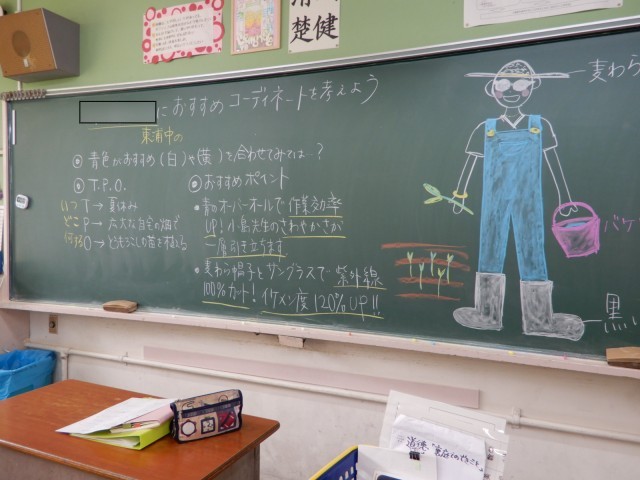 清楚
健
におすすめ コーディネートを考えよう
東浦中の
青色がおすすめ(白)や(黄)を合わせてみては…?
T.P.O.
いつ T→夏休み
どこ P→広大な自宅の畑で
何する O→とうもろこしの苗を植える
おすすめポイント
青のオーバーオールで作業効率
UP!小島先生のさわやかさが
一層引き立ちます
麦わら帽子とサングラスで紫外線
100%カット!イケメン度120%UP!!
麦わら
バケ
黒い
道徳